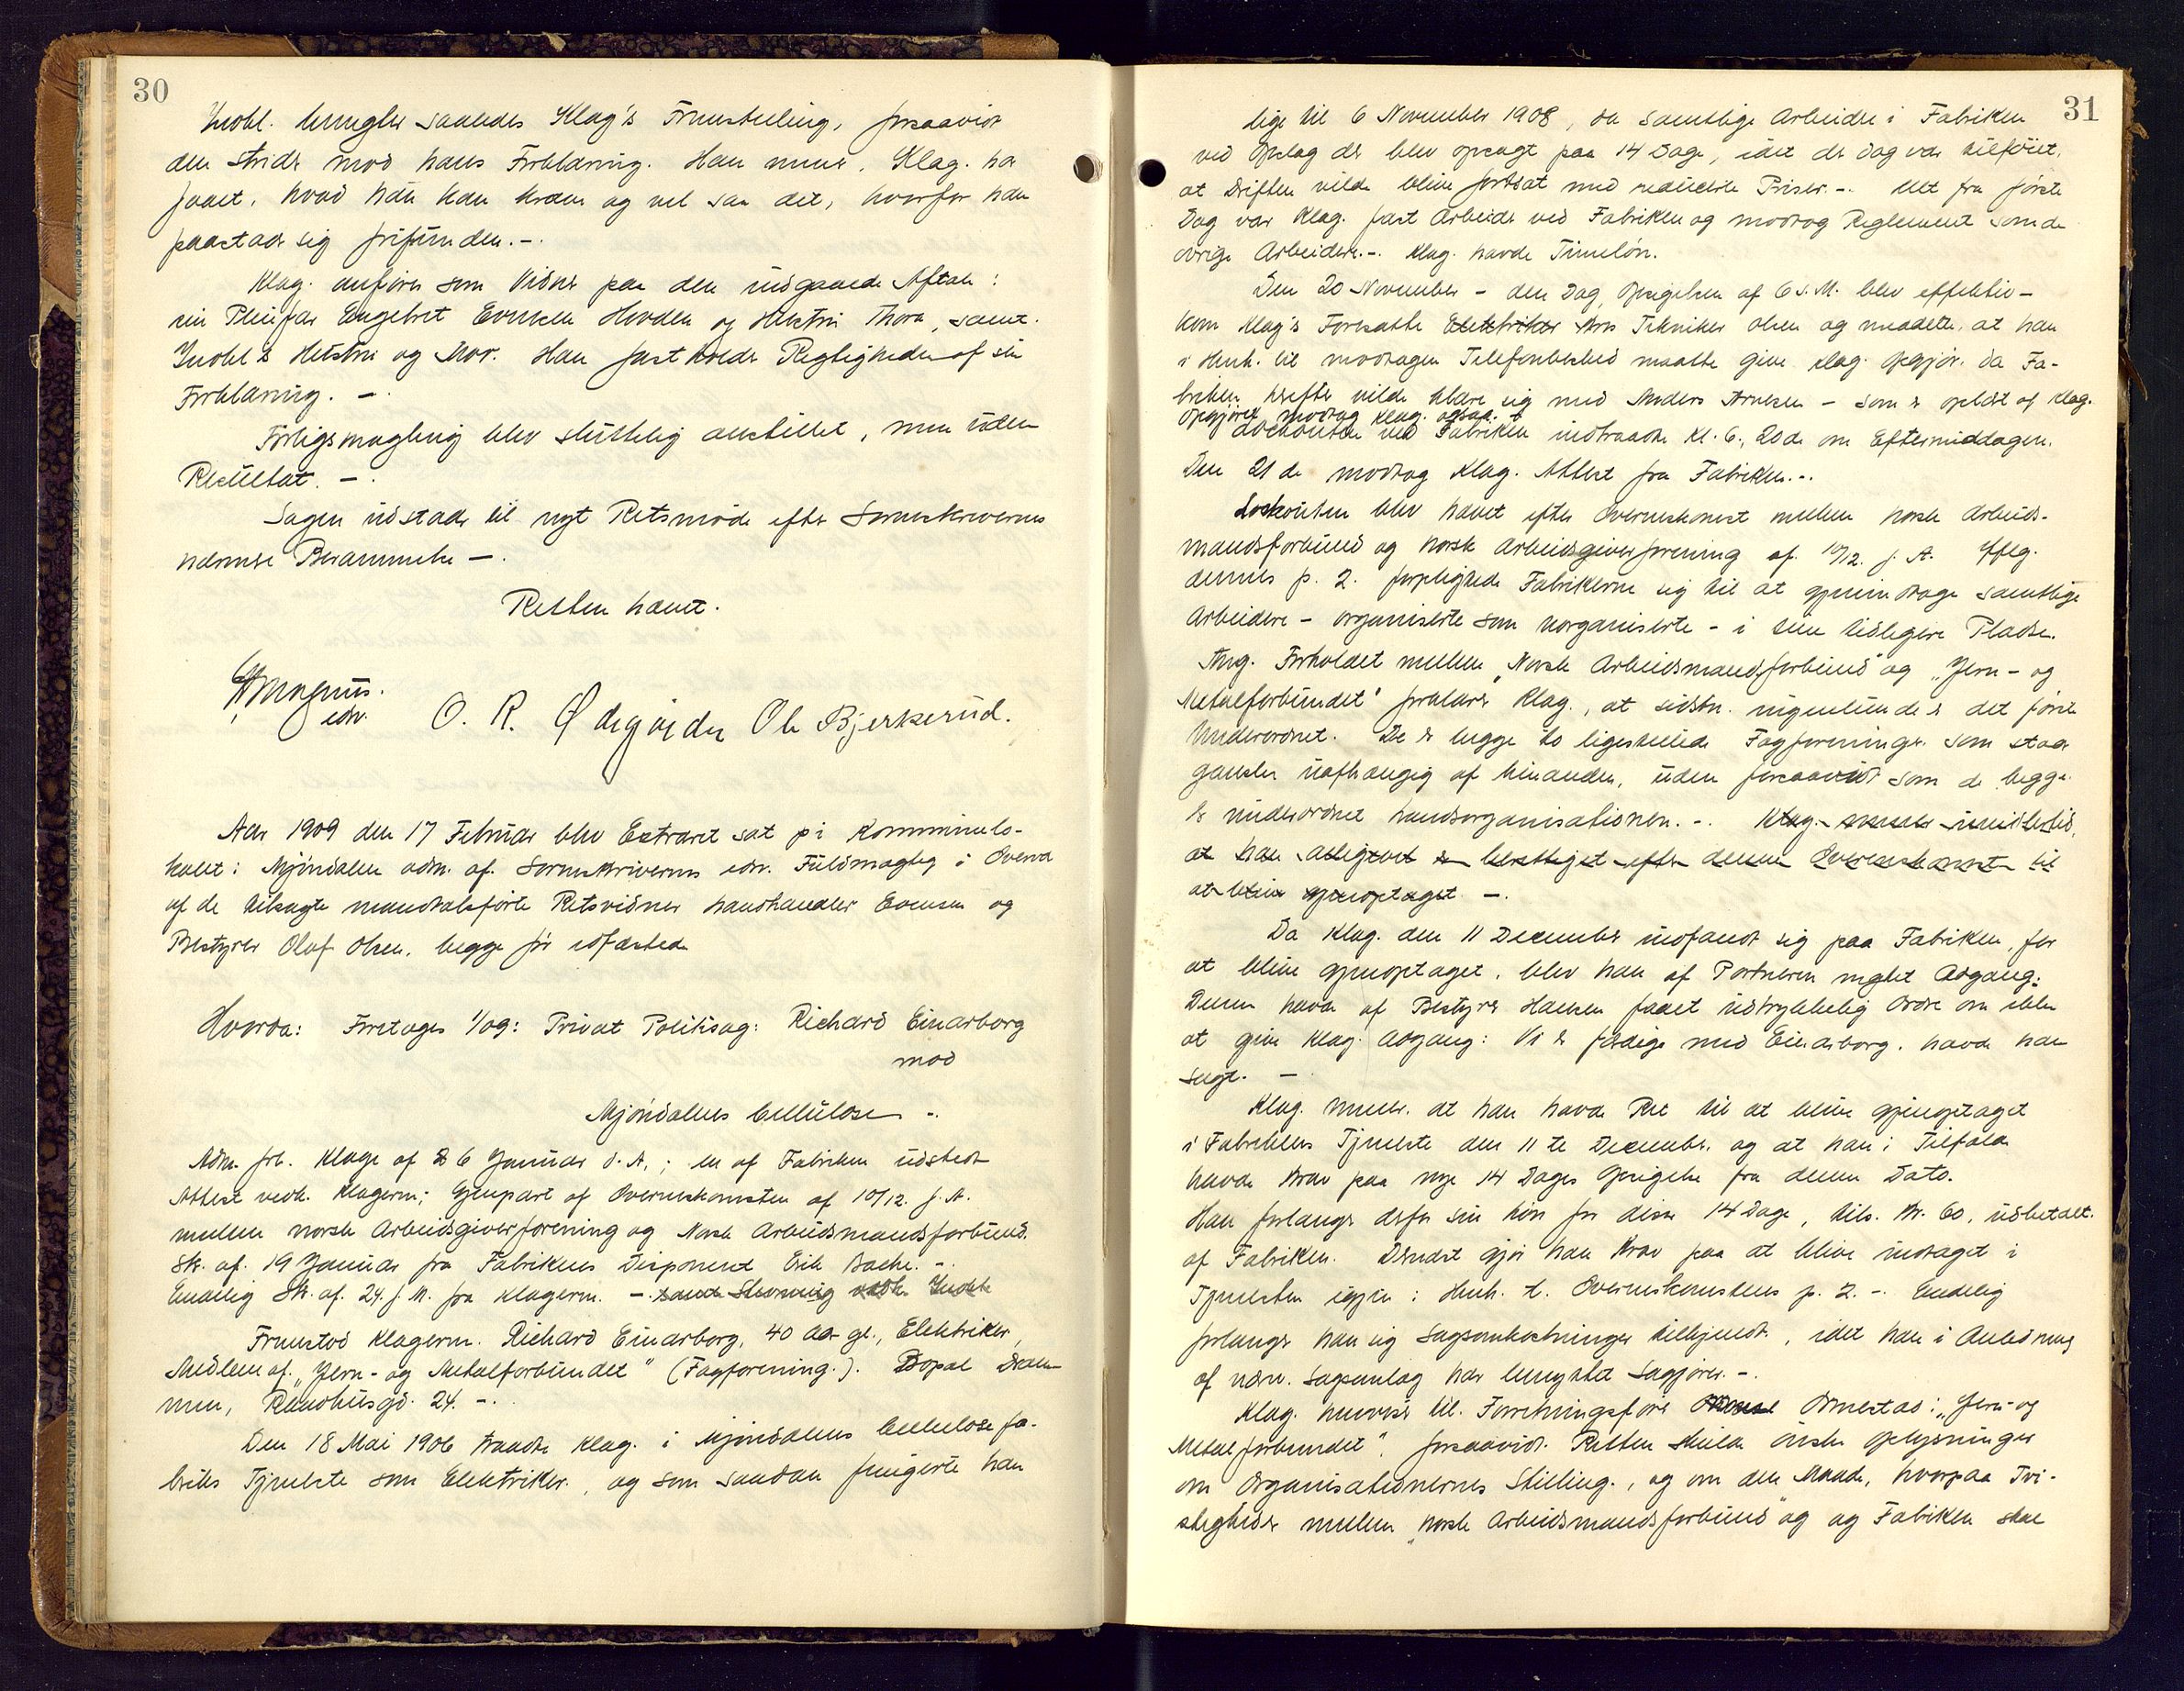 30
Indkl. benegter saaledes Klag's Fremstilling, forsaavidt
den strider mod hans Forklaring. Han mener, Klag. har
faaet, hvad han kan kræve og vel saa det, hvorfor han
paastaar sig frifunden. -.
Klag. anfører som Vidner paa den indgaaede Aftale:
sin Pleiefar Engebret Evensen Hovden og Hustru Thora, samt
Indkl's Hustru og Mor. Han fastholder Rigtigheden af sin
Forklaring. -.
Forligsmægling blev sluttelig anstillet, men uden
Resultat. -.
Sagen udstaar til nyt Retsmøde efter Sorenskriverens
nærmere Berammelse -.
Retten hævet.
Magnus.
edsv.
O. R. Ødegården Ole Bjerkerud.
Aar 1909 den 17 Februar blev Extraret sat på Kommunelo-
kalet i Mjøndalen adm. af Sorenskriverens edsv. Fuldmægtig i Overvær
af de tilsagte mandtalsførte Retsvidner Landhandler Evensen og
Bestyrer Olaf Olsen, begge før edfæstede
Hvorda: Foretages 1/09: Privat Politisag: Richard Einarborg
mod
Mjøndalens Cellulose -.
Adm. frl. Klage af 26 Januar d. A.; en af Fabriken udstedt
Attest vedk. Klageren; Gjenpart af Overenskomsten af 10/12. f. A.
mellem norsk Arbeidsgiverforening og Norsk Arbeidsmandsforbund.
Skr. af 19 Januar fra Fabrikens Disponent Erik Bache. -.
Endelig Skr. af. 24. f. M. fra Klageren. -.
Fremstod Klageren Richard Einarborg, 40 Aar gl., Elektriker,
Medlem af "Jern- og Metalforbundet" (Fagforening.). Bopæl Dram-
men, Raadhusgd. 24. -.
Den 18 Mai 1906 traadte Klag. i Mjøndalens Cellulosefa-
briks Tjeneste som Elektriker, og som saadan fungerte han
31
lige til 6 November 1908, da samtlige Arbeidere i Fabriken
ved Opslag der blev opsagt paa 14 Dage, idet der dog var tilføiet,
at Driften vilde blive fortsat med reducerte Priser. -. Alt fra første
Dag var Klag. fast Arbeider ved Fabriken og modtog Reglement som de
øvrige Arbeidere. -. Klag. havde Timeløn.
Den 20 November - den Dag, Opsigelsen af 6 d. M. blev effektiv -
kom Klag's Foresatte Elektriker hrs Tekniker Olsen og meddelte, at han
i Henh. til modtagen Telefonbesked maatte give Klag. Opgjør. da Fa-
briken herefter vilde klare sig med Anders Arnesen - som er oplært af Klag.
Opgjøret modtog Klag. ogsaa. t
Lockouten ved Fabriken indtraadte Kl. 6, 20de om Eftermiddagen.
Den 21 de modtog Klag. Attest fra Fabriken. -.
Lockouten blev hævet efter Overenskomst mellem norsk Arbeids-
mandsforbund og norsk Arbeidsgiverforening af 10/12. f. A. Iflg.
dennes p. 2. forpligtede Fabrikerne sig til at gjenindtage samtlige
Arbeidere - organiserte som uorganiserte - i sine tidligere Pladse.
Ang. Forholdet mellem "Norsk Arbeidsmandsforbund" og "Jern- og
Metalforbundet" forklarer Klag., at sidstn. ingenlunde er det første
Underordnet. De er begge to ligestillede Fagforeninger som staar
ganske uafhængig af hinanden, uden forsaavidt som de begge
er underordnet Landsorganisationen. -. Klag. mener imidlertid,
at han alligevel er berettiget efter denne Overenskomst til
at blive gjenoptaget. -.
Da Klag. den 11 December indfandt sig paa Fabriken, for
at blive gjenoptaget, blev han af Portneren nægtet Adgang:
Denne havde af Bestyrer Hansen faaet udtrykkelig Ordre om ikke
at give Klag. Adgang: Vi er færdige med Einarborg. havde han
sagt. -
Klag. mener, at han havde Ret til at blive gjenoptaget
i Fabrikens Tjeneste den 11 te December, og at han i Tilfælde
havde Krav paa nye 14 Dages Opsigelse fra denne Dato.
Han forlanger derfor sin Løn for disse 14 Dage, tils. Kr. 60, udbetalt
af Fabriken. Dernæst gjør han Krav paa at blive indtaget i
Tjenesten igjen i Henh. t. Overenskomstens p. 2. -. Endelig
forlanger han sig Sagsomkostninger tilkjendt, idet han i Anledning
af nærv. Sagsanlæg har benyttet Sagfører. -.
Klag. henviser til Forretningsfører Ormestad i "Jern- og
Metalforbundet", forsaavidt Retten skulde ønske Oplysninger
om Organisationernes Stilling, og om den Maade, hvorpaa Tvi-
stigheder mellem "norsk Arbeidsmandsforbund" og og Fabriken skal